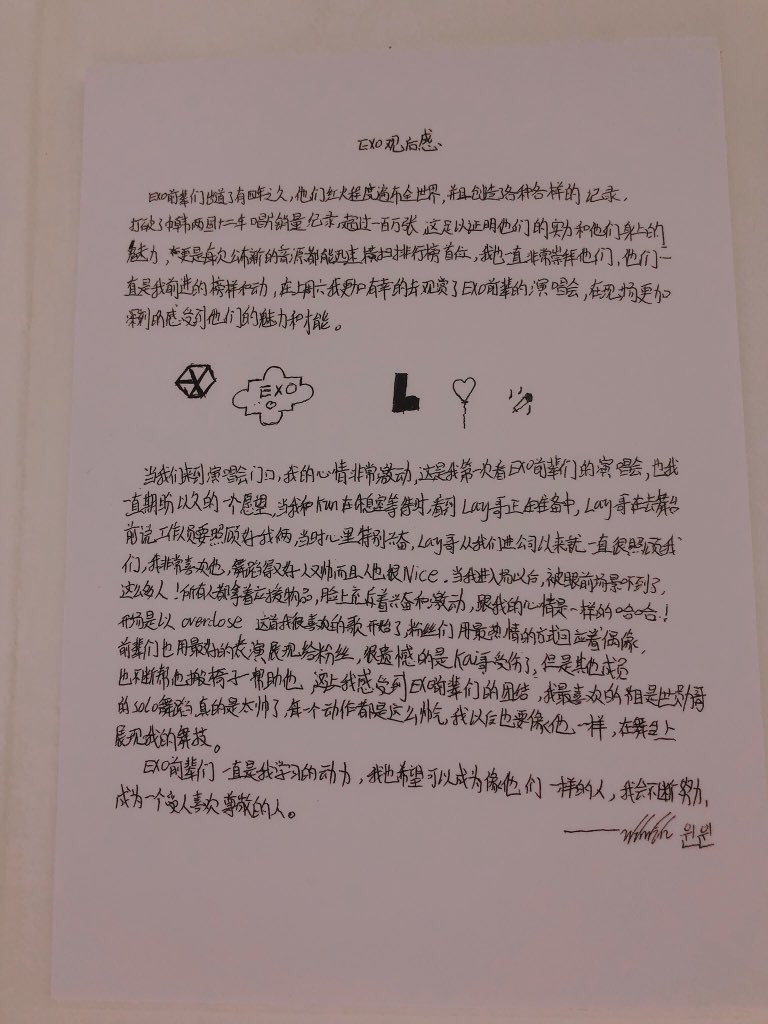 EXO观后感
EXO前辈们出道了有四年之久,他们红火程度遍布全世界,并且创造了各种各样的 记录,
打破了中韩两国十二年唱片销量纪录,超过一百万张 这足以证明他们的实力和他们身上的
魅力,更是每次公布新的音源都能迅速横扫排行榜首位,我也一直非常崇拜他们,他们一
直是我前进的榜样和动,在上周六我更加有幸的去观赏了EXO前辈的演唱会,在现场更加
深刻的感受到他们的魅力和才能。
EXO
L
当我们来到演唱会门口,我的心情非常激动,这是我第一次看EXO前辈们的演唱会,也我
一直期盼以久的一个愿望,当我和Kun在休息室等待时,看到Lay哥正在准备中,Lay哥在去舞台
前说工作人员要照顾好我俩,当时心里特别兴奋,Lay哥从我们进公司以来就一直很照顾我
们,我非常喜欢他,舞蹈很好人又帅而且人也很Nice,当我进入场以后,被眼前场景吓到了,
这么多人!所有人都拿着应援物品,脸上充斥着兴奋和激动,跟我的心情是一样的哈哈!
开场是以 overdose 这首我很喜欢的歌开始了,粉丝们用最热情的方式回应着偶像,
前辈们也用最好的表演展现给粉丝,很遗憾的是Kai哥受伤了,但是其他成员
也不断帮他搬椅子帮助他 让我感受到EXO前辈们的团结,我最喜欢的是世勋哥
的solo舞蹈,真的是太帅了,每一个动作都是这么帅气,我以后也要像他一样,在舞台上
展现我的舞技。
EXO前辈们一直是我学习的动力,我也希望可以成为像他们一样的人,我会不断努力,
成为一个受人喜欢尊敬的人。
——윈윈